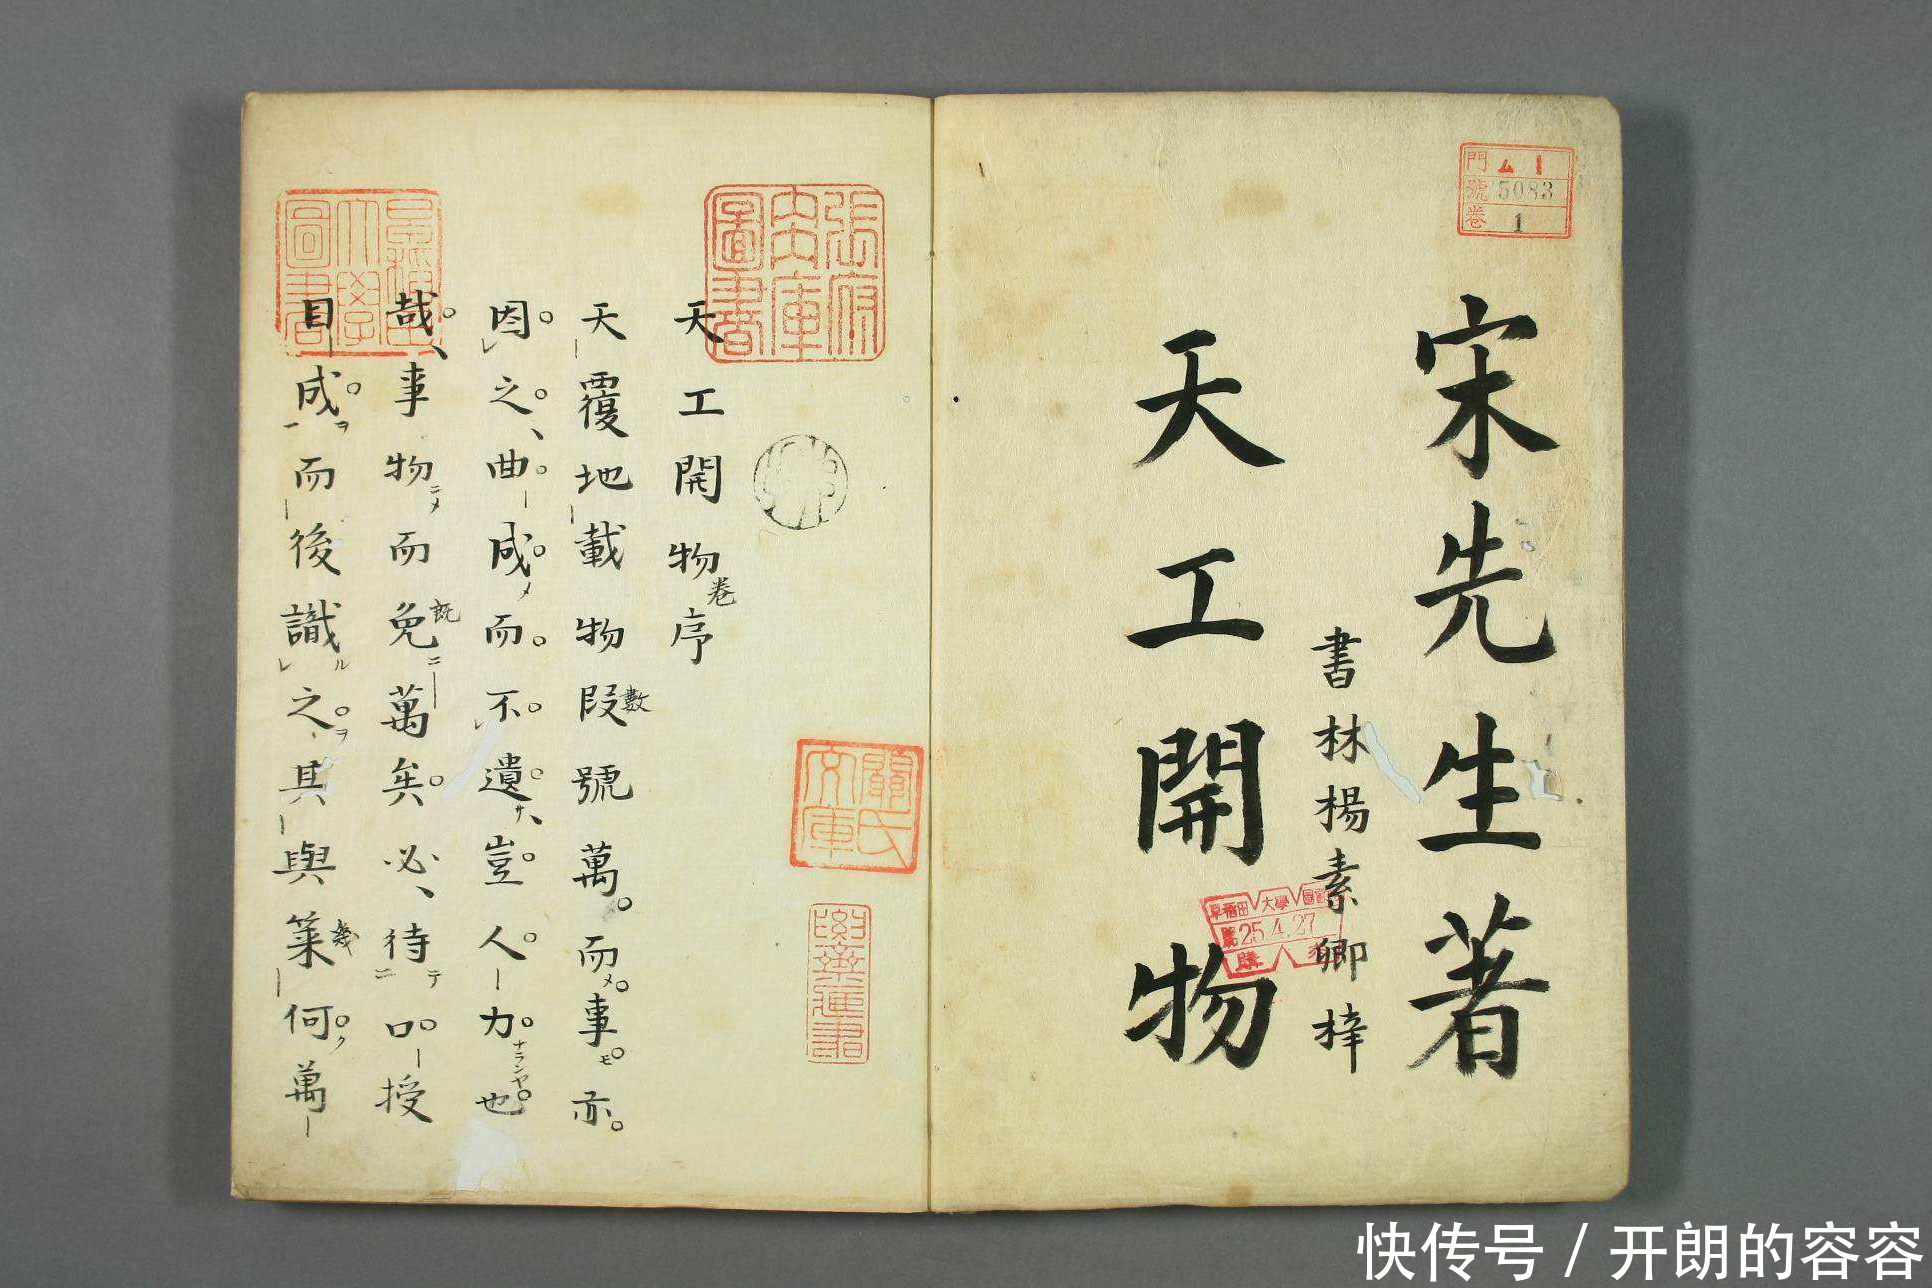 宋先生著
書林楊素卿梓
天工開物
門 ム1
號 5083
卷 1
早稻田大學圖書
25.4.27
購
天工開物卷序
天覆地載物段數號萬而事亦
因之曲成而不遺豈人力ナランヤ也
哉事物而免既萬矣必待口授
目成而後識之其與策幾何萬
張府内庫圖書
關氏文庫
圖書
快传号 / 开朗的容容